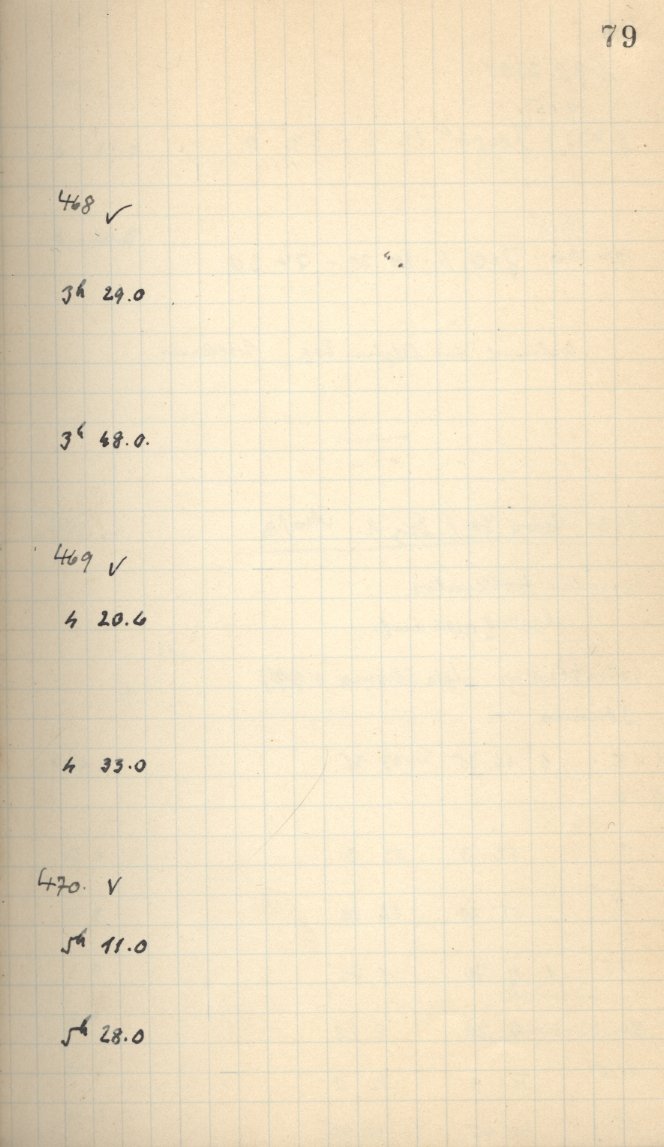 79
468 ✓
3h 29.0
3h 48.0.
469 ✓
4 20.6
4 33.0
470. ✓
5h 11.0
5h 28.0